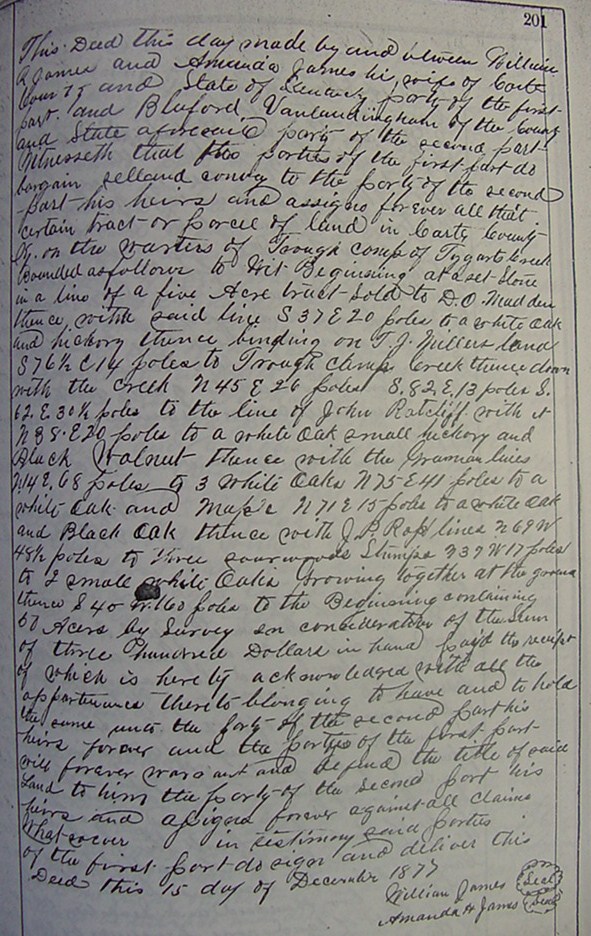 201
This Deed this day made by and between William
A James and Amanda James his wife of Carter
County and State of Kentucky party of the first
part. and Bluford Vanlandingham of the County
and State aforesaid party of the second part
Witnesseth that the parties of the first part do
bargain sell and convey to the party of the second
part his heirs and assigns forever all that
certain tract or parcel of land in Carter County
Ky. on the warters of Trough camp of Tygarts Creek
Bounded as follows to Wit Beginsing at a set Stone
in a line of a five Acre tract Sold to D.O. Madden
thence with said line S 37 E 20 poles to a white Oak
and hickory thence binding on T. J. Nullers land
S 76½ E 14 poles to Trough Camp Creek thence down
with the creek N 45 E 26 poles S. 82. E. 13 poles S.
62. E. 30½ poles to the line of John Ratcliff with it
N 38. E 20 poles to a white Oak small hickory and
Black Walnut thence with the lines
N 14 E. 68 poles to 3 white Oaks N 75 E 41 poles to a
white Oak and Maple N 71 E 15 poles to a white Oak
and Black Oak thence with J. P. Rap lines N 69 W
48½ poles to three sourwoods Stumps N 39 W 17 poles
to 2 small white Oaks Growing together at the ground
thence S 40 W. 160 poles to the Beginsing containing
50 Acers by Survey in consideration of the Sum
of three hundred Dollars in hand paid the receipt
of which is hereby acknowledged with all the
appertinances thereto blonging to have and to hold
the same unto the party of the second part his
heirs forever and the parties of the first part
will forever warrant and defend the title of said
Land to him the party of the second part his
heirs and assigns forever against all claims
whatsoever in testimony said parties
of the first part do sign and deliver this
Deed this 15 day of December 1877
William James Seal
Amanda H James Seal